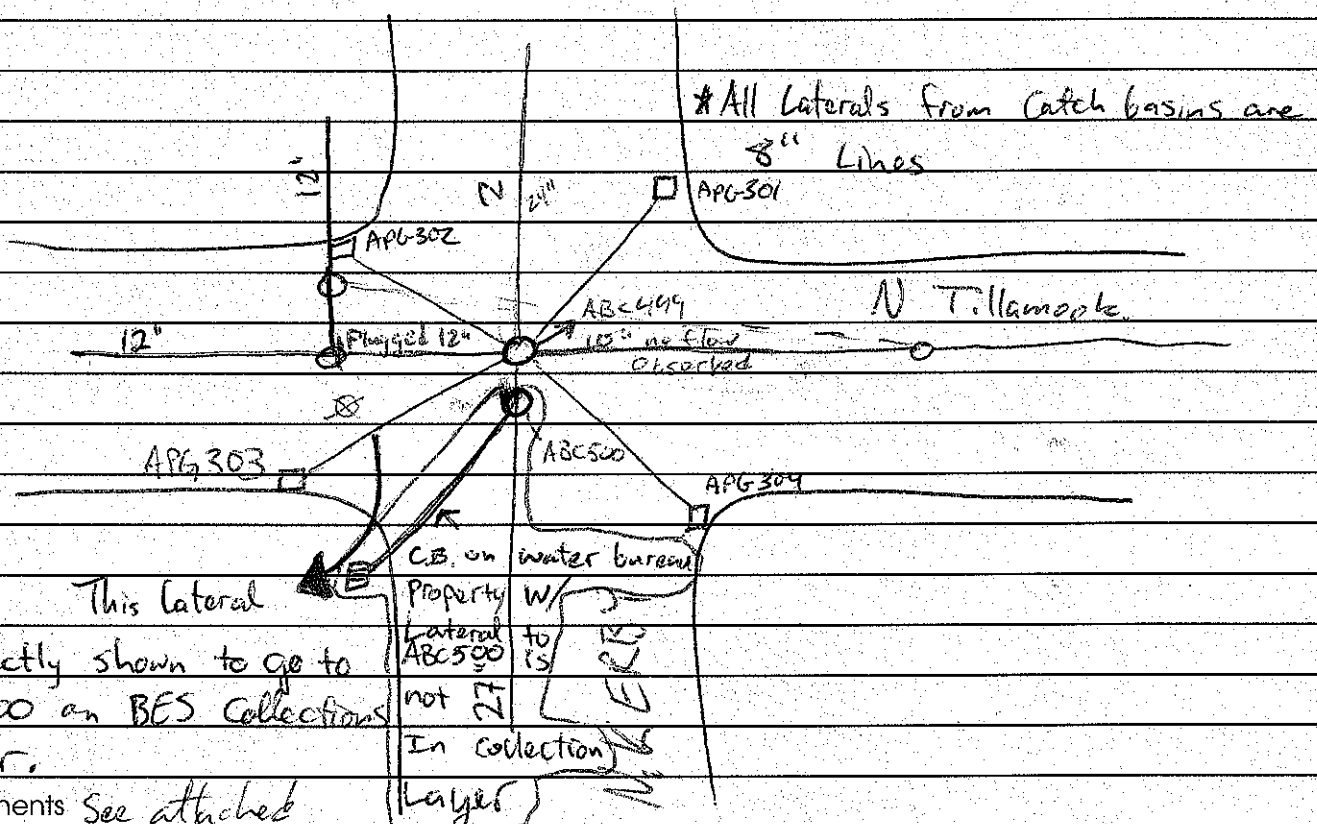 *All Laterals from Catch basins are
8" Lines
12"
N
24"
APG-301
APG-302
ABC499
N Tillamook
12"
Plugged 12"
10" no flow
Observed
APG 303
ABC500
APG-304
C.B. on water bureau
Property w/
Lateral to
ABC500 is
not
In Collection
Layer
27
N. KERBY
This lateral
ctly shown to go to
00 on BES Collections
r.
nents See attached